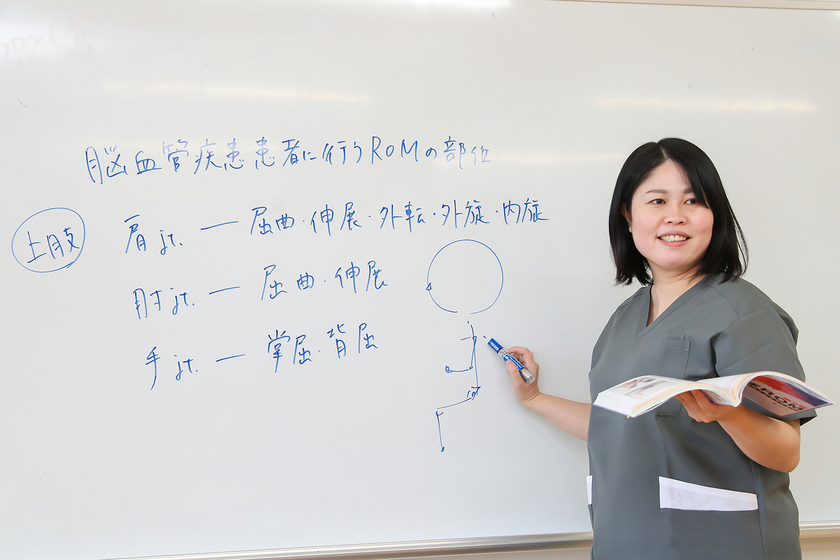 脳血管疾患患者に行うROMの部位
上肢
肩jt. ― 屈曲・伸展・外転・外旋・内旋
肘jt. ― 屈曲・伸展
手jt. ― 掌屈・背屈